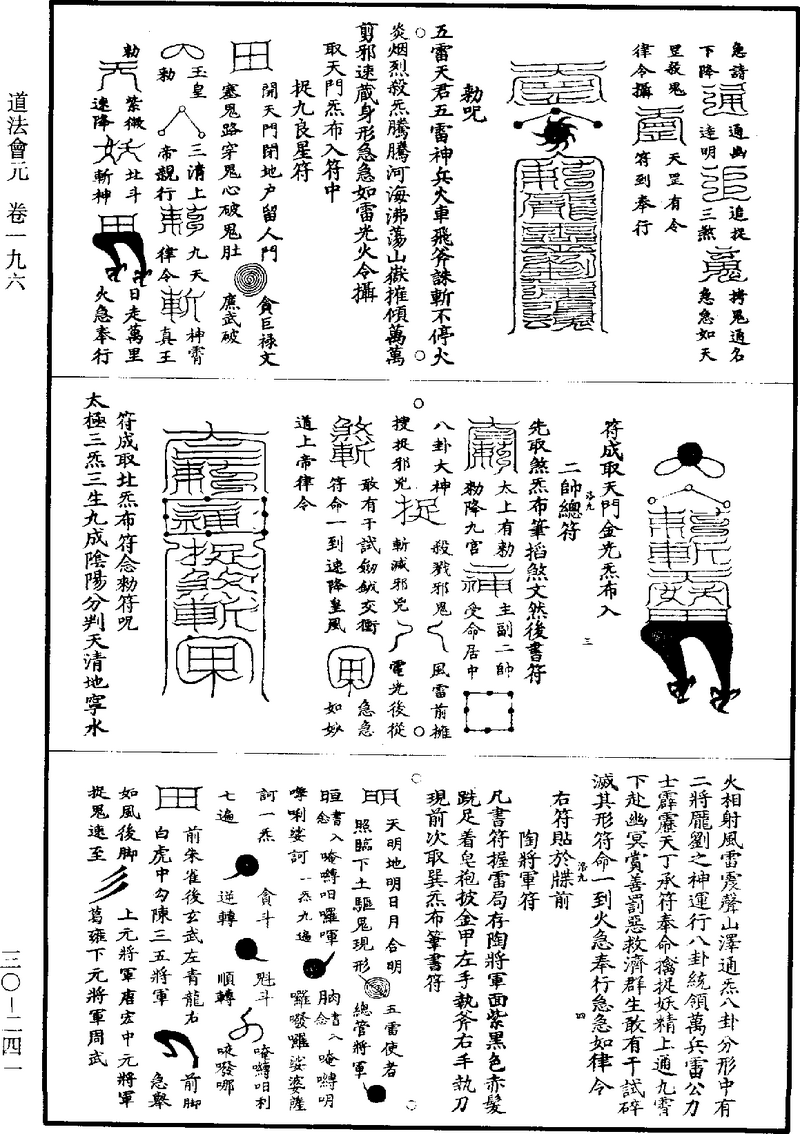 道法會元　卷一九六
三〇—二四一
急請　通幽　追捉　拷鬼通名
下降　達明　三煞　急急如天
罡殺鬼　天罡有令
律令攝　符到奉行
勅呪
五雷天君五雷神兵火車飛斧誅斬不停火
炎烟烈殺炁騰騰河海沸蕩山嶽摧傾萬萬
剪邪速藏身形急急如雷光火令攝
取天門炁布入符中
捉九良星符
開天門閉地户留人門　貪巨禄文
塞鬼路穿鬼心破鬼肚　廉武破
玉皇　三清上　九天　神霄
勅　帝親行　律令　真王
勅　紫微　北斗　日走萬里
速降　斬神　火急奉行
符成取天門金光炁布入
二帥總符
先取煞炁布筆掐煞文然後書符
太上有勅　主副二帥
勅降九宮　受命居中
八卦大神　殺戮邪鬼　風雷前擁
搜捉邪兇　斬滅邪兇　電光後從
敢有干試劒鉞交衝　急急
符命一到速降皇風　如妙
道上帝律令
符成取北炁布符念勅符呪
太極三炁三生九成陰陽分判天清地寧水
火相射風雷震聲山澤通炁八卦分形中有
二將龐劉之神運行八卦統領萬兵雷公力
士霹靂天丁承符奉命擒捉妖精上通九霄
下赴幽冥賞善罰惡救濟群生敢有干試碎
滅其形符命一到火急奉行急急如律令
右符貼於牒前
陶將軍符
凡書符握雷局存陶將軍面紫黑色赤髮
跣足着皂袍披金甲左手執斧右手執刀
現前次取巽炁布筆書符
天明地明日月合明　五雷使者
照臨下土驅鬼現形　總管將軍
書入　念　唵嚩呬囉唓　書入　念　唵嚩明
嚤唎娑訶　一炁九遍　囉發囉娑婆薩
訶一炁　貪斗　魁斗　唵嚩呬利
七遍　逆轉　順轉　㖿發哪
前朱雀後玄武左青龍右　前脚
白虎中勾陳三五將軍　急擧
如風後脚　上元將軍唐宏中元將軍
捉鬼速至　葛雍下元將軍周武